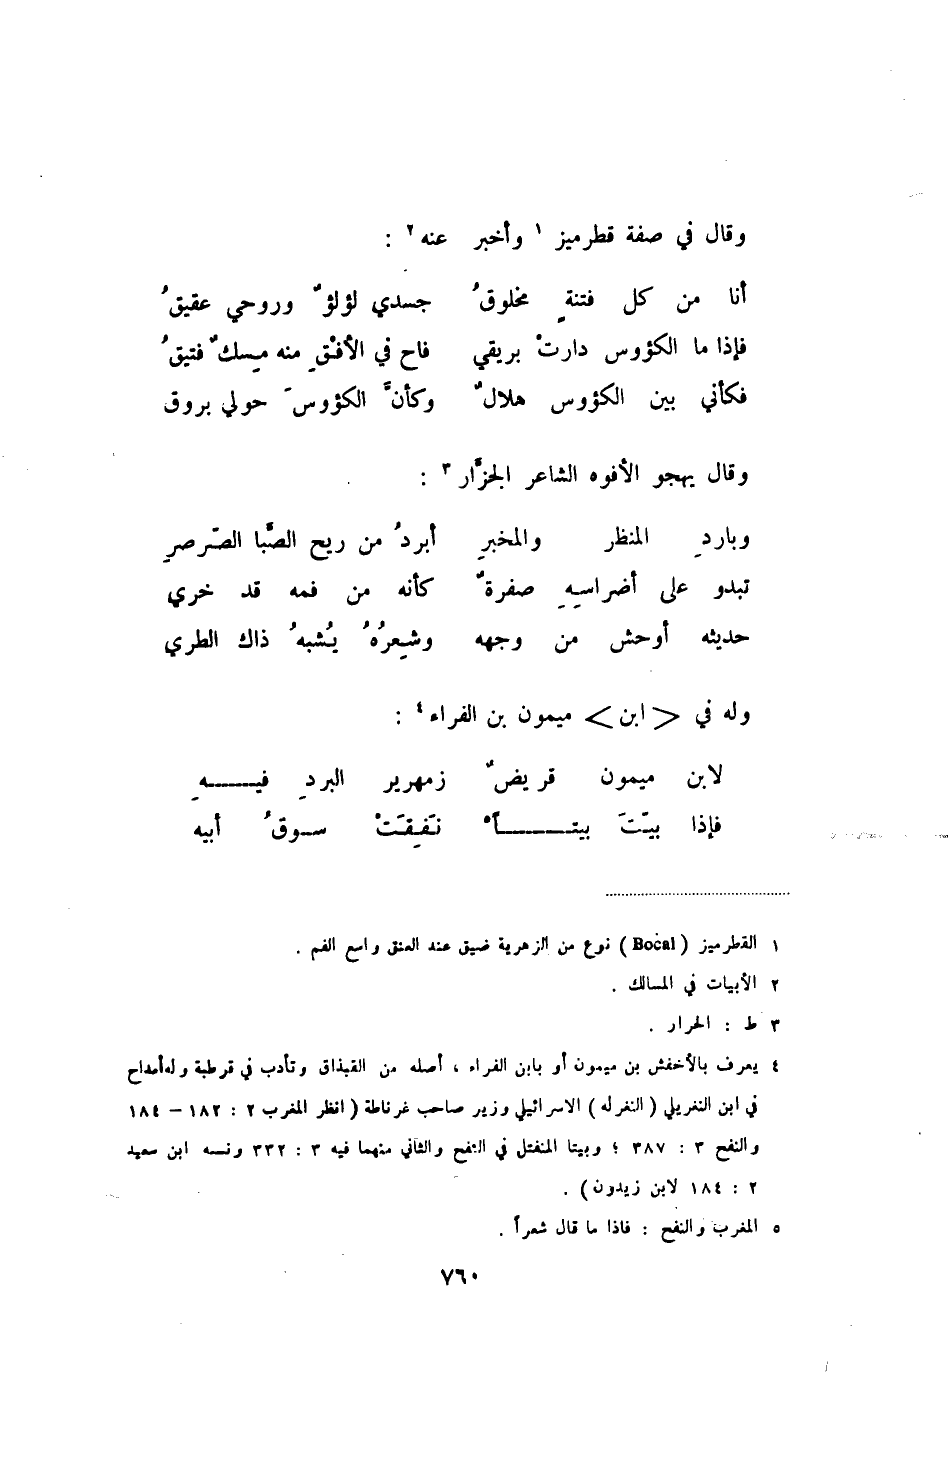 وقال في صفة قطرميز ١ وأخبر عنه ٢ :
أنا من كل فتنةٍ مخلوقُ جسدي لؤلؤٌ وروحي عقيقُ
فإذا ما الكؤوس دارتْ بريقي فاح في الأفْقِ منه مِسكٌ فتيقُ
فكأني بين الكؤوس هلالٌ وكأنَّ الكؤوسَ حولي بروق
وقال يهجو الأفوه الشاعر الجزَّار ٣ :
وباردِ المنظر والمخبرِ أبردُ من ريح الصَّبا الصّرصرِ
تبدو على أضراسِهِ صفرةٌ كأنه من فمه قد خري
حديثه أوحش من وجهه وشِعرُهُ يُشبهُ ذاك الطري
وله في <ابن> ميمون بن الفراء ٤ :
لابن ميمون قريضٌ زمهرير البردِ فيـــــهِ
فإذا بيّتَ بيتـــــاً ٥ نَفِقَتْ سـوقُ أبيه
١ القطرميز (Bocal) نوع من الزهرية ضيق عند العنق واسع الفم .
٢ الأبيات في المسالك .
٣ ط : الحرار .
٤ يعرف بالأخفش بن ميمون أو بابن الفراء ، أصله من القبذاق وتأدب في قرطبة وله أمداح
في ابن النغريلي (النغرله) الاسرائيلي وزير صاحب غرناطة (انظر المغرب ٢ : ١٨٢ - ١٨٤
والنفح ٣ : ٣٨٧ ؛ وبيتا المنفتل في النفح والثاني منهما فيه ٣ : ٣٣٢ ونسبه ابن سعيد
٢ : ١٨٤ لابن زيدون) .
٥ المغرب والنفح : فاذا ما قال شعراً .
٧٦٠